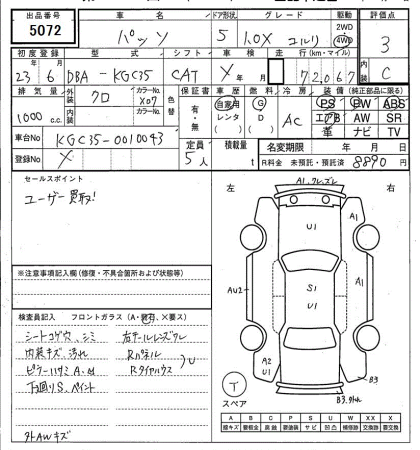 出品番号 車名 ドア形状 グレード 駆動 評価点
5072 パッソ 5 1.0X 2WD 4WD 3
初度登録 型式 シフト 車検 走行(km・マイル) 内装
23年 6月 DBA-KGC35 CAT X年 月 72067 C
排気量 外装色 クロ カラーNo. X07 色替 保証書 車歴 燃料 冷房 装備(純正部品に限る)
1000 c.c. 内装色 カラーNo. 有・無 自家用 レンタ G D AC PS PW ABS
エアB AW SR
革 ナビ TV
車台No KGC35-0010043 定員 5人 積載量 名変期限 年 月 日
登録No X R料金 未預託・預託済 8890円
セールスポイント
ユーザー買取!
左 右
A1
U1
A1
AU2
S1
U1
A1
A2
U1
B3
B3
スペア
※注意事項記入欄(修復・不具合箇所および状態等)
検査員記入 フロントガラス(A・飛石、×要ス)
シートコゲ穴、シミ
内装キズ、汚れ
Rパネル
Rタイヤハウス
下廻りS、ペイント
外AWキズ
A B C P S U W X XX
線キズ 要板金 腐蝕 要塗装 サビ 凹凸 補修跡 交換跡 要交換